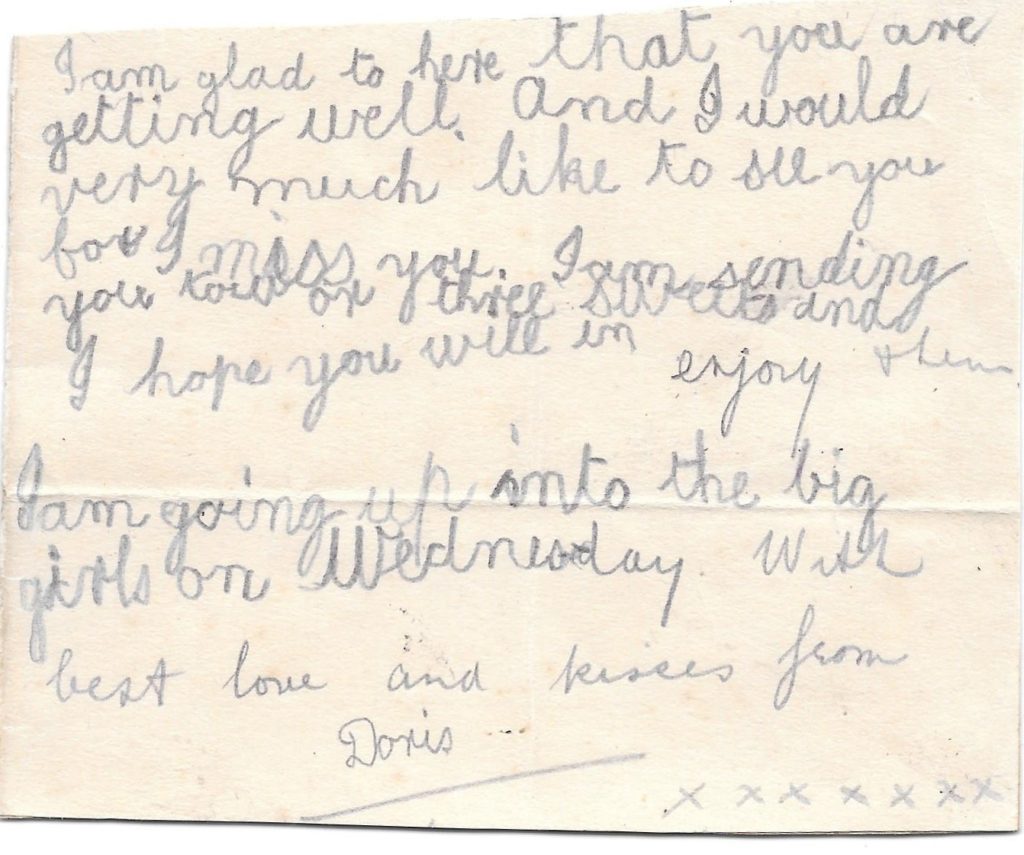 I am glad to here that you are
getting well. And I would
very much like to see you
for I miss you. I am sending
you tow or three sweets and
I hope you will in enjoy them
I am going up into the big
girls on Wednesday. With
best love and kisses from
Doris
x x x x x x x